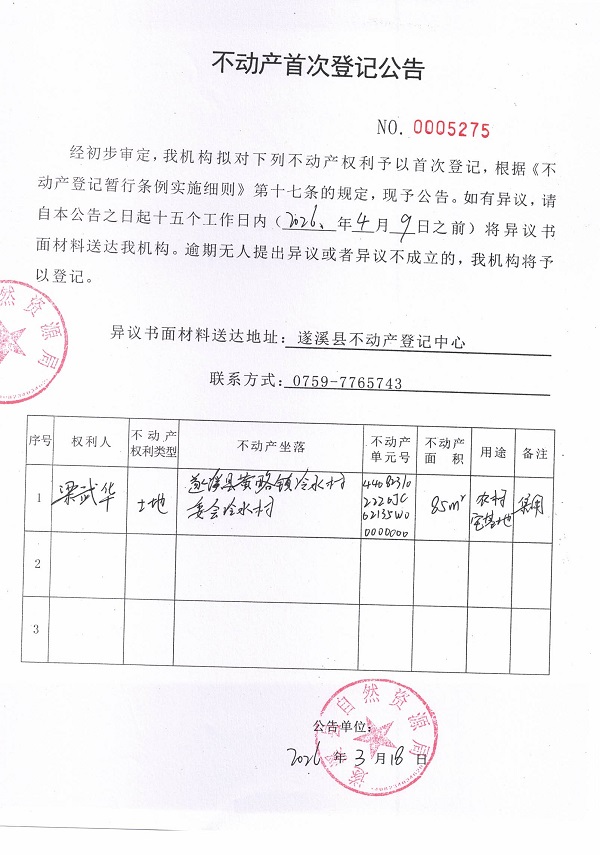 不动产首次登记公告
NO. 0005275
经初步审定，我机构拟对下列不动产权利予以首次登记，根据《不
动产登记暂行条例实施细则》第十七条的规定，现予公告。如有异议，请
自本公告之日起十五个工作日内（2026、年4月9日之前）将异议书
面材料送达我机构。逾期无人提出异议或者异议不成立的，我机构将予
以登记。
然资源局
异议书面材料送达地址：遂溪县不动产登记中心
联系方式：0759-7765743
序号 权利人 不动产权利类型 不动产坐落 不动产单元号 不动产面积 用途 备注
1 梁武华 土地 遂溪县黄略镇冷水村委会冷水村 85m² 农村宅基地
2
3
遂溪县自然资源局
公告单位：
2026年3月18日